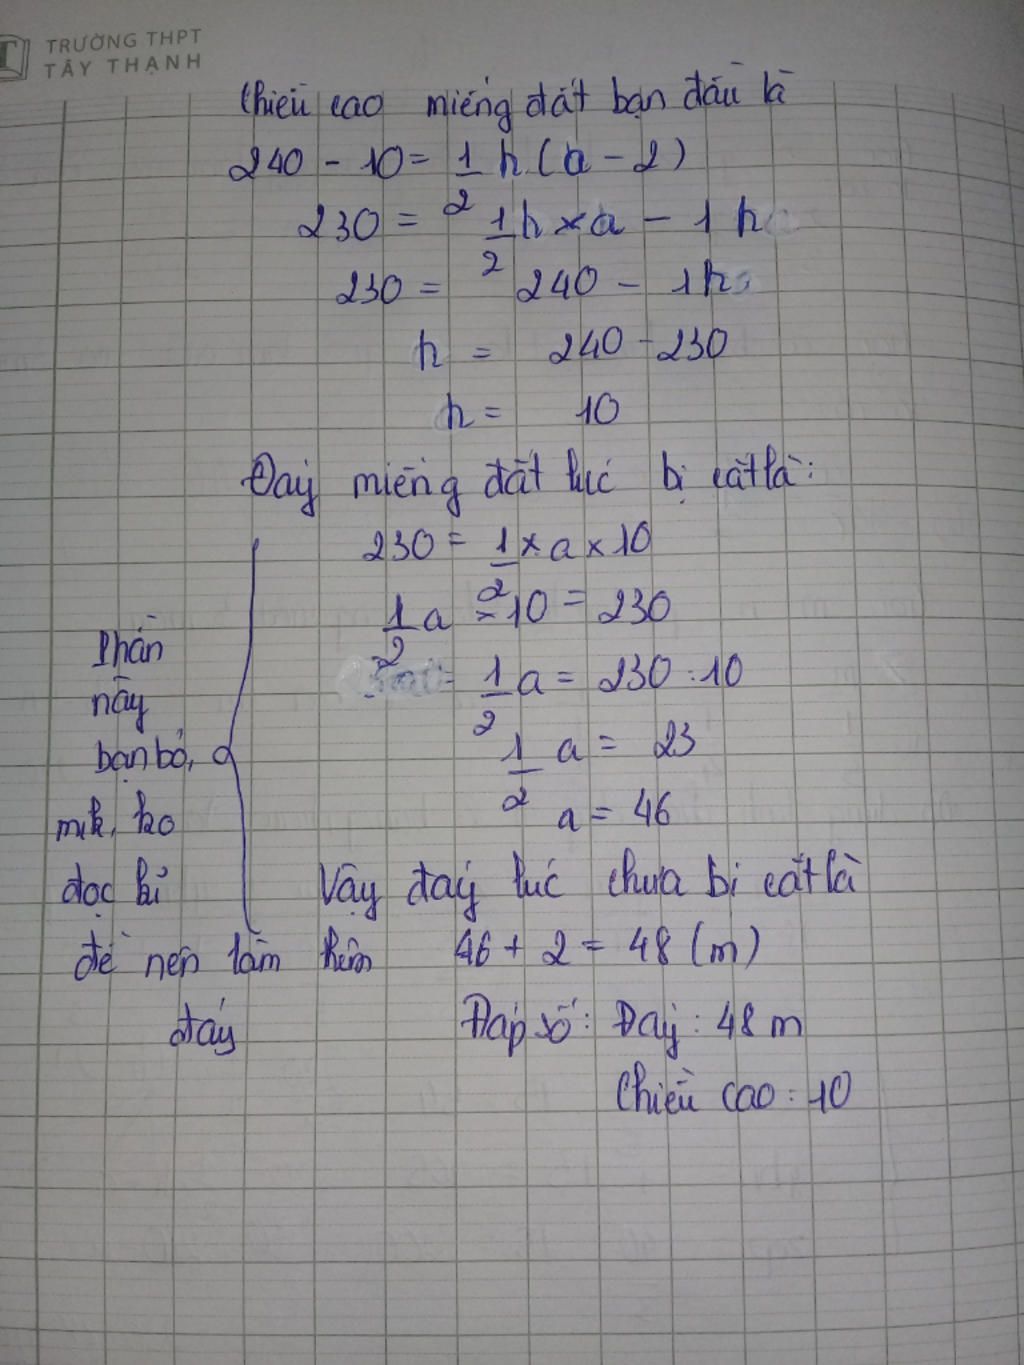 TRƯỜNG THPT
TÂY THẠNH
Chiều cao miếng đất ban đầu là
240 - 10 = 1/2 h (a - 2)
230 = 1/2 h × a - 1 h
230 = 240 - 1h
h = 240 - 230
h = 10
Đáy miếng đất lúc bị cắt là:
230 = 1/2 × a × 10
1/2 a × 10 = 230
1/2 a = 230 : 10
1/2 a = 23
a = 46
Phần
này
bạn bỏ,
mik, ko
đọc kĩ
đề nên làm thêm
đáy
Vậy đáy lúc chưa bị cắt là
46 + 2 = 48 (m)
Đáp số: Đáy: 48 m
Chiều cao: 10